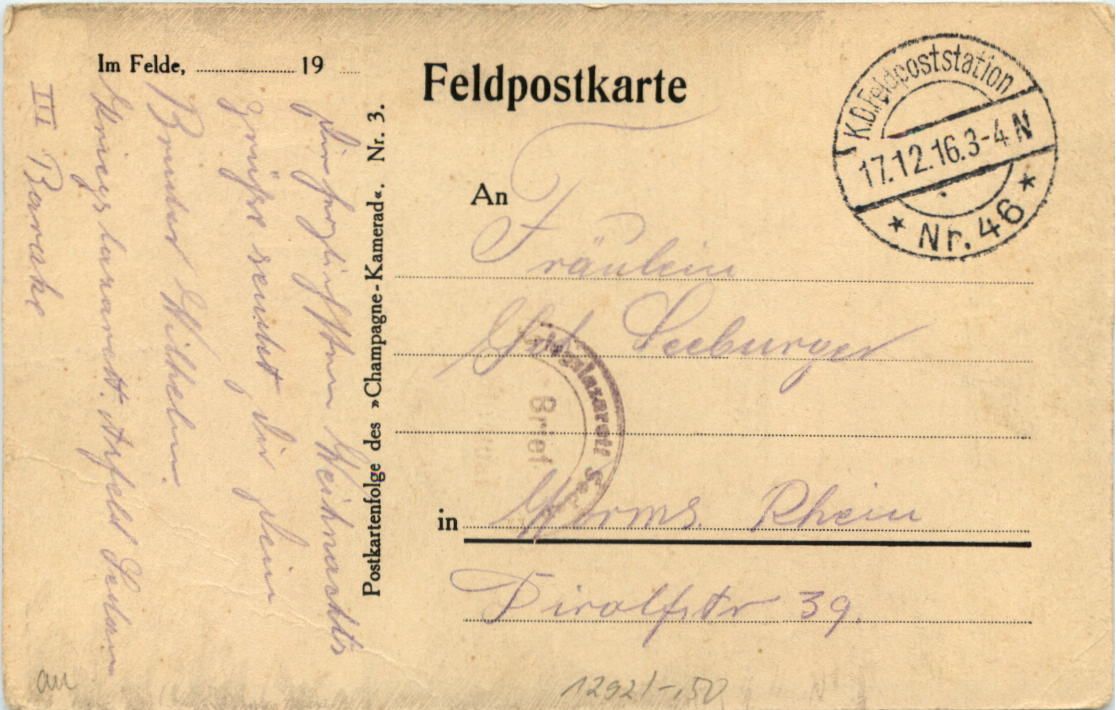 Im Felde, 19
Feldpostkarte
K.D. Feldpoststation
17.12.16. 3-4 N
* Nr. 46 *
An
Fräulein
Seeburger
in Worms. Rhein
39.
Postkartenfolge des »Champagne-Kamerad«. Nr. 3.
Die herzlichsten Weihnachts
grüße sendet dir dein
Bruder Wilhelm.
Kriegslazarett. Sedan
III Barake
Kriegslazarett
Brief
au
1292/-,50